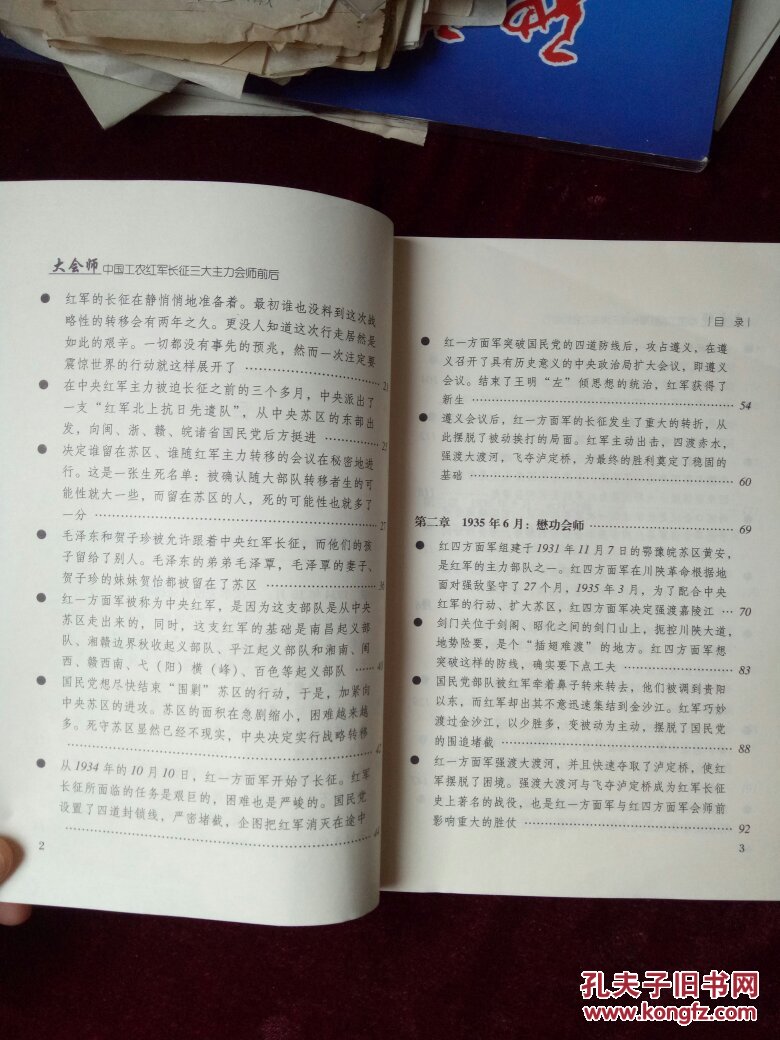 大会师 中国工农红军长征三大主力会师前后
● 红军的长征在静悄悄地准备着。最初谁也没料到这次战
略性的转移会有两年之久。更没人知道这次行走居然是
如此的艰辛。一切都没有事先的预兆，然而一次注定要
震惊世界的行动就这样展开了 21
● 在中央红军主力被迫长征之前的三个多月，中央派出了
一支“红军北上抗日先遣队”，从中央苏区的东部出
发，向闽、浙、赣、皖诸省国民党后方挺进 25
● 决定谁留在苏区、谁随红军主力转移的会议在秘密地进
行。这是一张生死名单：被确认随大部队转移者生的可
能性就大一些，而留在苏区的人，死的可能性也就多了
一分 27
● 毛泽东和贺子珍被允许跟着中央红军长征，而他们的孩
子留给了别人。毛泽东的弟弟毛泽覃，毛泽覃的妻子、
贺子珍的妹妹贺怡都被留在了苏区 36
● 红一方面军被称为中央红军，是因为这支部队是从中央
苏区走出来的，同时，这支红军的基础是南昌起义部
队、湘赣边界秋收起义部队、平江起义部队和湘南、闽
西、赣西南、弋（阳）横（峰）、百色等起义部队 40
● 国民党想尽快结束“围剿”苏区的行动，于是，加紧向
中央苏区的进攻。苏区的面积在急剧缩小，困难越来越
多。死守苏区显然已经不现实，中央决定实行战略转移
42
● 从1934年的10月10日，红一方面军开始了长征。红军
长征所面临的任务是艰巨的，困难也是严峻的。国民党
设置了四道封锁线，严密堵截，企图把红军消灭在途中
44
2
|目 录|
● 红一方面军突破国民党的四道防线后，攻占遵义，在遵
义召开了具有历史意义的中央政治局扩大会议，即遵义
会议。结束了王明“左”倾思想的统治，红军获得了
新生 54
● 遵义会议后，红一方面军的长征发生了重大的转折，从
此摆脱了被动挨打的局面。红军主动出击，四渡赤水，
强渡大渡河，飞夺泸定桥，为最终的胜利奠定了稳固的
基础 60
第二章 1935年6月：懋功会师 69
● 红四方面军组建于1931年11月7日的鄂豫皖苏区黄安，
是红军的主力部队之一。红四方面军在川陕革命根据地
面对强敌坚守了27个月，1935年3月，为了配合中央
红军的行动、扩大苏区，红四方面军决定强渡嘉陵江 70
● 剑门关位于剑阁、昭化之间的剑门山上，扼控川陕大道，
地势险要，是个“插翅难渡”的地方。红四方面军想
突破这样的防线，确实要下点工夫 83
● 国民党部队被红军牵着鼻子转来转去，他们被调到贵阳
以东，而红军却出其不意迅速集结到金沙江。红军巧妙
渡过金沙江，以少胜多，变被动为主动，摆脱了国民党
的围追堵截 88
● 红一方面军强渡大渡河，并且快速夺取了泸定桥，使红
军摆脱了困境。强渡大渡河与飞夺泸定桥成为红军长征
史上著名的战役，也是红一方面军与红四方面军会师前
影响重大的胜仗 92
3
孔夫子旧书网
www.kongfz.com